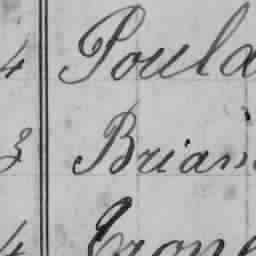 4 Poula
3 Brian
4 Crone